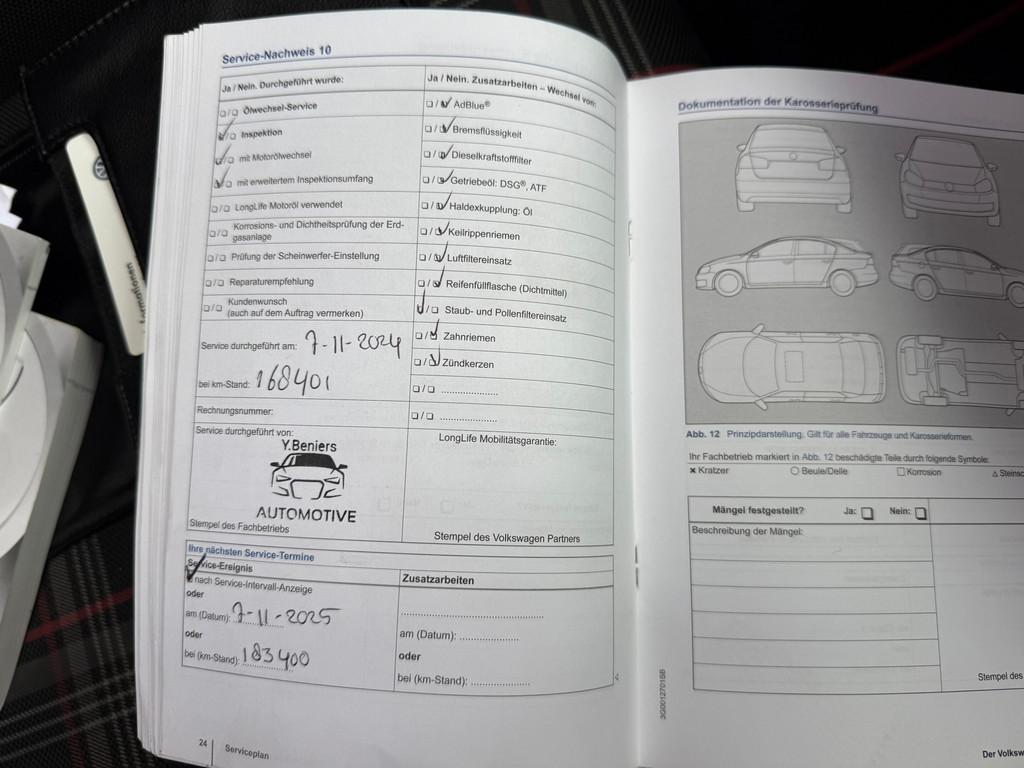 Service-Nachweis 10
Ja / Nein. Durchgeführt wurde:
❑/❑ Ölwechsel-Service
✓/❑ Inspektion
✓/❑ mit Motorölwechsel
✓/❑ mit erweitertem Inspektionsumfang
❑/❑ LongLife Motoröl verwendet
❑/❑ Korrosions- und Dichtheitsprüfung der Erd-
gasanlage
❑/❑ Prüfung der Scheinwerfer-Einstellung
❑/❑ Reparaturempfehlung
❑/❑ Kundenwunsch
(auch auf dem Auftrag vermerken)
Service durchgeführt am: 7-11-2024
bei km-Stand: 168401
Rechnungsnummer:
Service durchgeführt von:
Y.Beniers
AUTOMOTIVE
Stempel des Fachbetriebs
Ja / Nein. Zusatzarbeiten – Wechsel von:
❑/✓ AdBlue®
❑/✓ Bremsflüssigkeit
❑/✓ Dieselkraftstofffilter
❑/✓ Getriebeöl: DSG®, ATF
❑/✓ Haldexkupplung: Öl
❑/✓ Keilrippenriemen
❑/✓ Luftfiltereinsatz
❑/✓ Reifenfüllflasche (Dichtmittel)
✓/❑ Staub- und Pollenfiltereinsatz
❑/✓ Zahnriemen
❑/✓ Zündkerzen
❑/❑ ......................
❑/❑ ......................
LongLife Mobilitätsgarantie:
Stempel des Volkswagen Partners
Ihre nächsten Service-Termine
Service-Ereignis
✓ nach Service-Intervall-Anzeige
oder
am (Datum): 7-11-2025
oder
bei (km-Stand): 183400
Zusatzarbeiten
......................................................
am (Datum): ......................
oder
bei (km-Stand): ......................
24 Serviceplan
Dokumentation der Karosserieprüfung
Abb. 12 Prinzipdarstellung. Gilt für alle Fahrzeuge und Karosserieformen.
Ihr Fachbetrieb markiert in Abb. 12 beschädigte Teile durch folgende Symbole:
× Kratzer ○ Beule/Delle □ Korrosion △ Steinsc
Mängel festgestellt? Ja: ❑ Nein: ❑
Beschreibung der Mängel:
Stempel des
3G0012701BB
Der Volksw